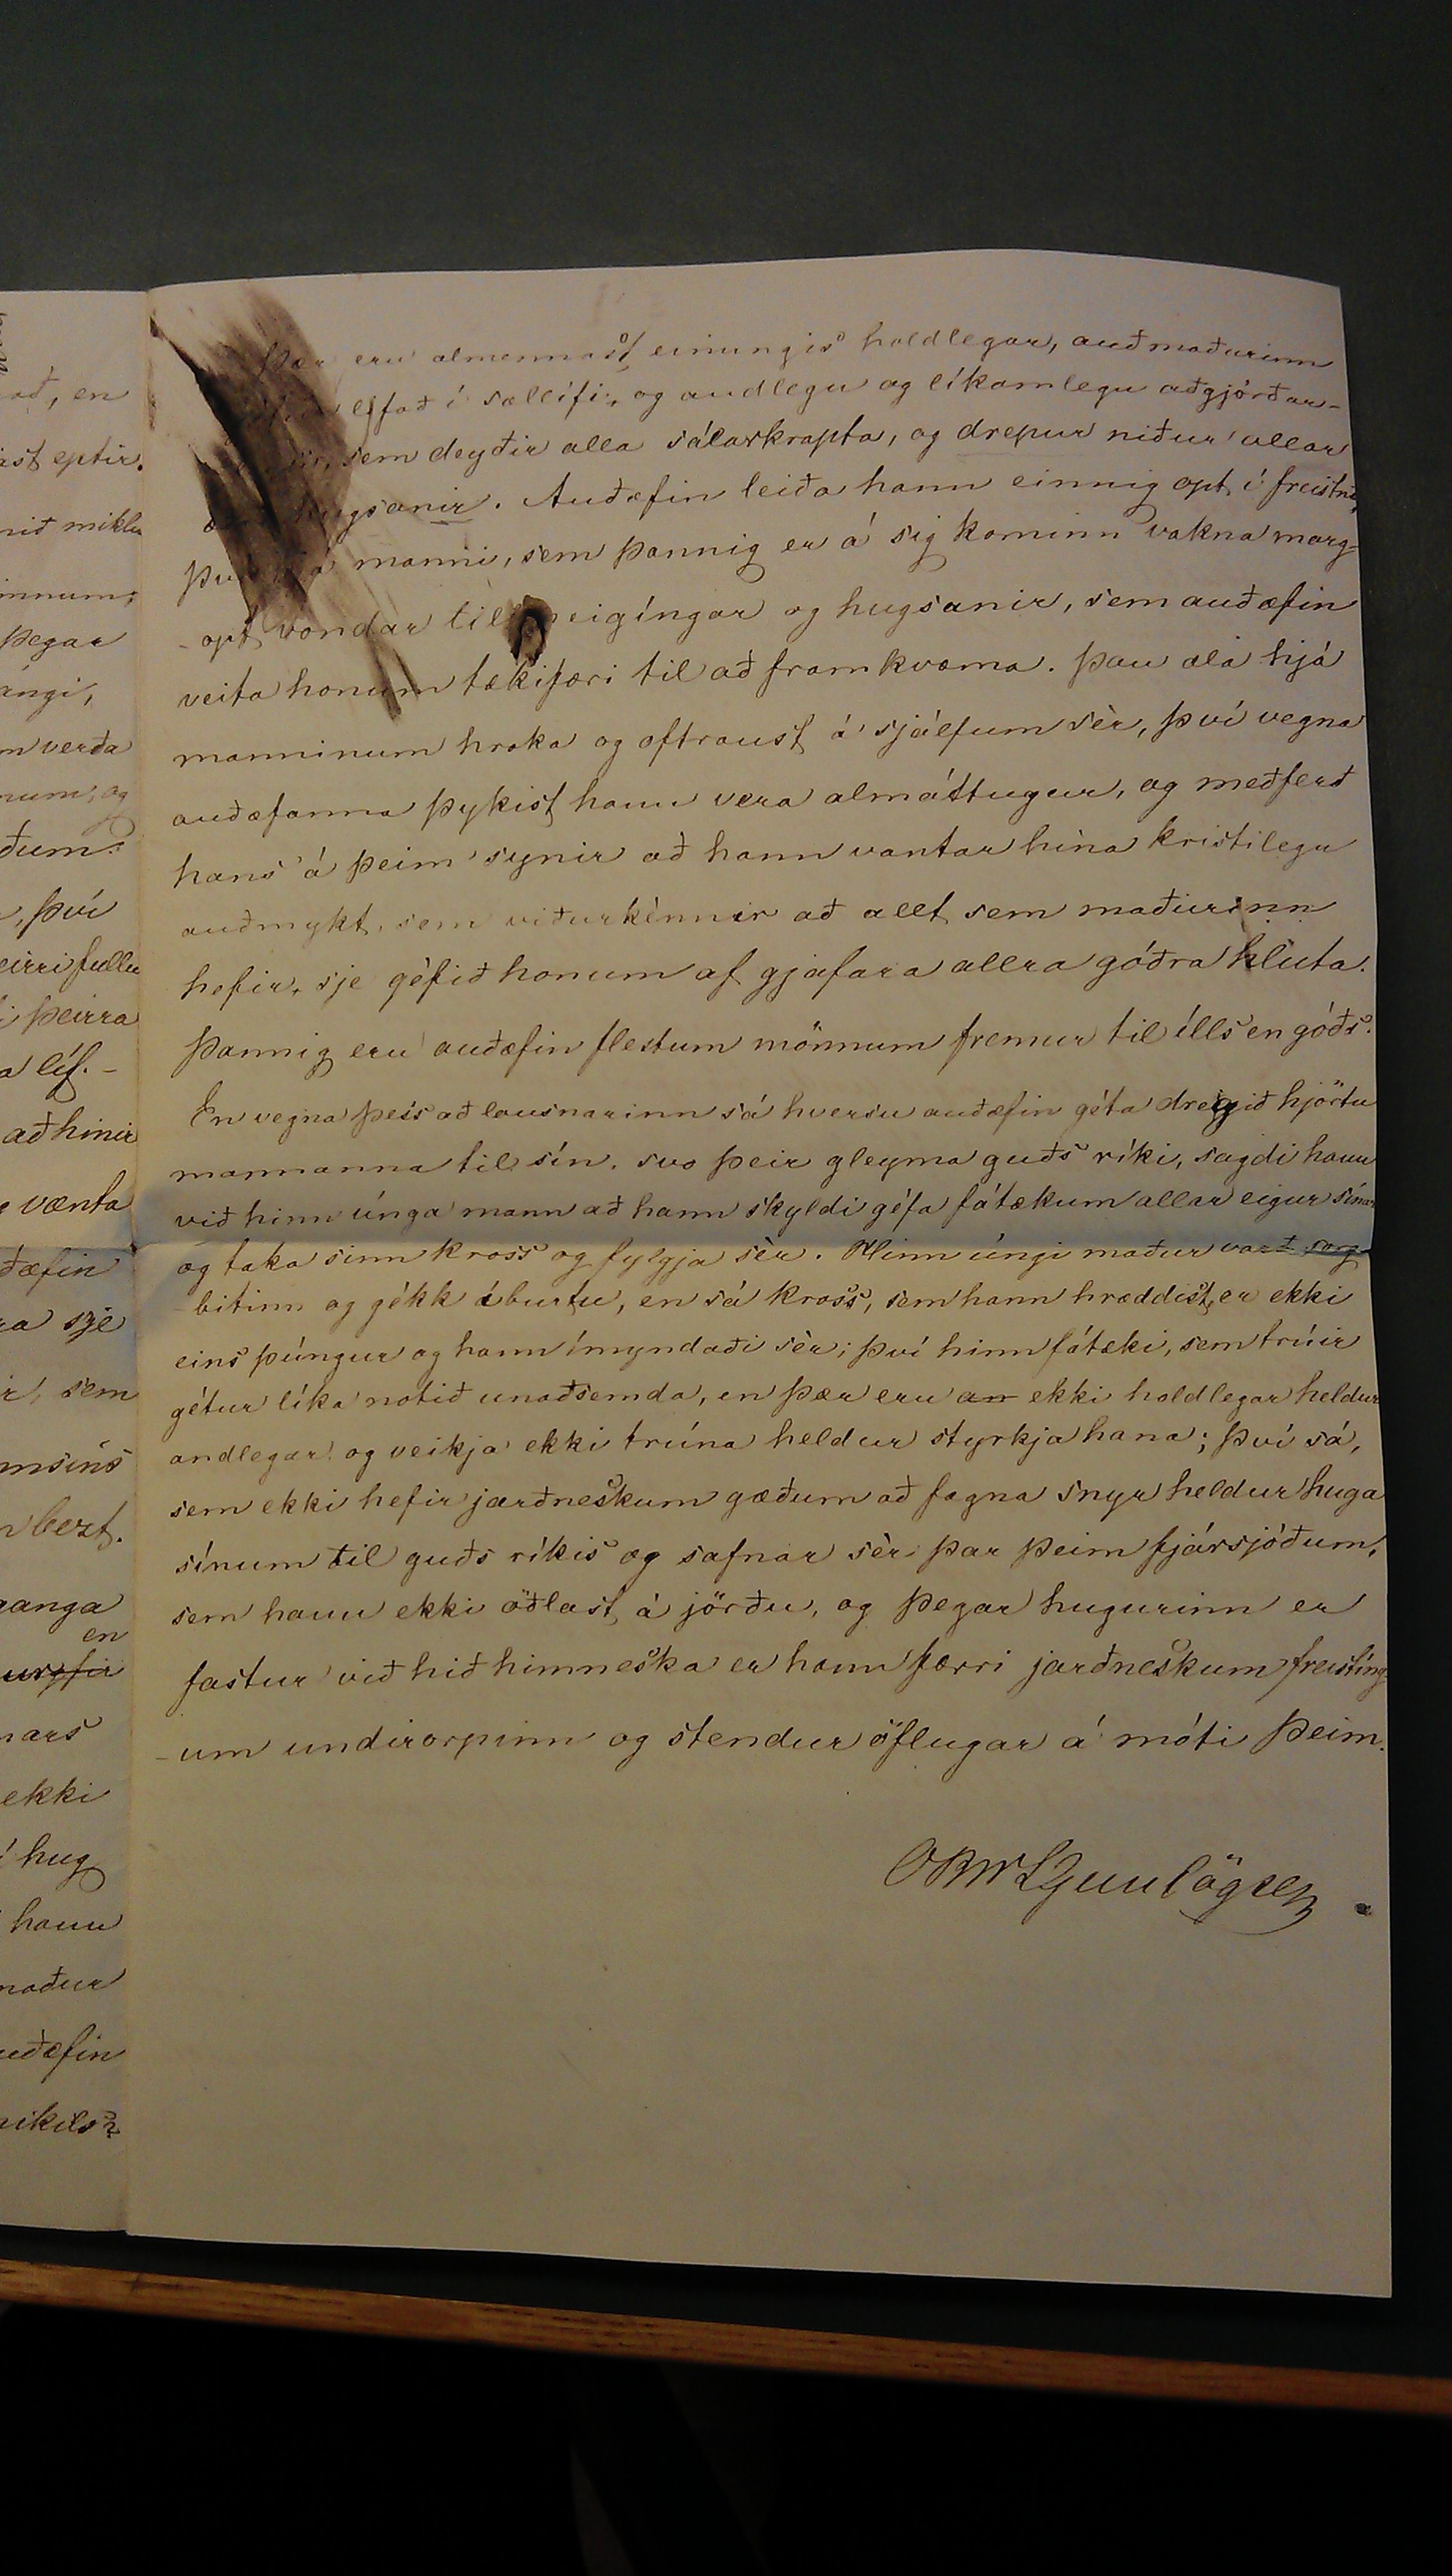 að, en
ast eptir.
nið miklu
innum;
þegar
ángi,
m verða
num, og
ðum.
, því
eirri fullu
i þeirra
a líf. -
að hinir
e vænta
ðæfin
ra sjé
ir, sem
msins
n bezt.
ganga
en
mars
ekki
í hug
hann
maður
uðæfin
mikils?
Þær eru almennast einungis holdlegar, auðmaðurinn
lifað í sællífi, og andlegu og líkamlegu aðgjörðar-
sem deyðir alla sálarkrapta, og drepur niður allar
hugsanir. Auðæfin leiða hann einnig opt í freistni,
því hjá manni, sem þannig er á sig kominn vakna marg-
opt vondar tilhneigíngar og hugsanir, sem auðæfin
veita honum tækifæri til að framkvæma. Þau ala hjá
manninum hroka og oftraust á sjálfum sèr, því vegna
auðæfanna þykist hann vera almáttugur, og meðferð
hans á þeim synir að hann vantar hina kristilegu
auðmykt, sem viðurkènnir að allt sem maðurinn
hefir, sje gèfið honum af gjafara allra góðra hluta.
Þannig eru auðæfin flestum mönnum fremur til ílls en góðs.
En vegna þess að lausnarinn sá hversu auðæfin géta dregið hjörtu
mannanna til sín, svo þeir gleyma guðs ríki, sagdi hann
við hinn únga mann að hann skyldi géfa fátækum allar eigur sínar
og taka sinn kross og fylgja sèr. Hinn úngi maður varð sorg-
bitinn og gékk áburtu, en sá kross, sem hann hræddist, er ekki
eins þúngur og hann ímyndaði sèr; því hinn fátæki, sem trúir
gétur líka notið unaðsemda, en þær eru an ekki holdlegar heldur
andlegar og veikja ekki trúna heldur styrkja hana; því sá,
sem ekki hefir jarðneskum gæðum að fagna snyr heldur huga
sínum til guðs ríkis og safnar sèr þar þeim fjársjóðum,
sem hann ekki öðlast á jörðu, og þegar hugurinn er
fastur við hið himneska er hann færri jarðneskum freistíng-
um undirorpinn og stendur öflugar á móti þeim.